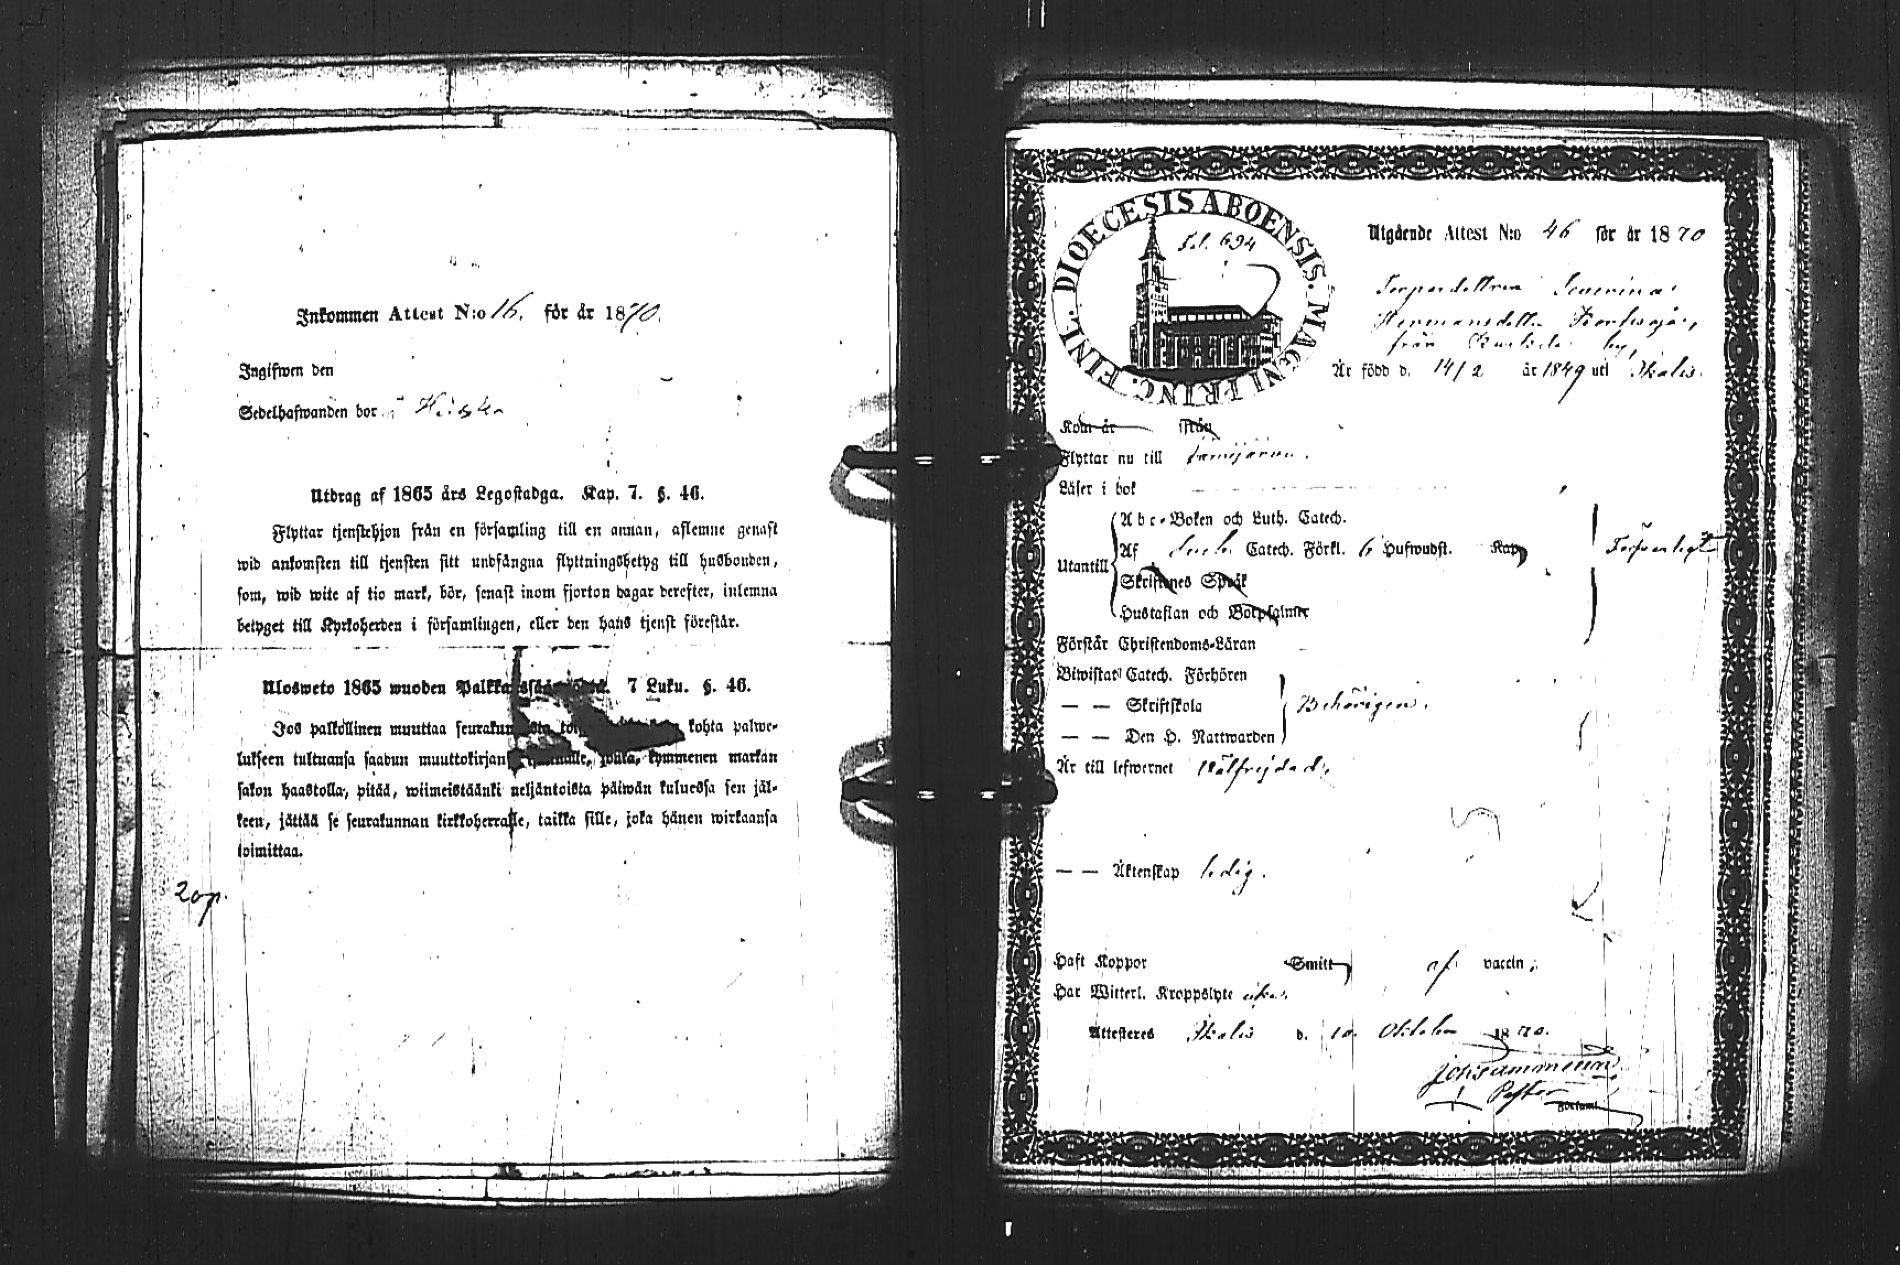 Inkommen Attest N:o 16. för år 1870.
Ingifwen den
Sedelhafwanden bor i
Utdrag af 1865 års Legostadga. Kap. 7. §. 46.
Flyttar tjenstehjon från en församling till en annan, aflemne genast
wid ankomsten till tjensten sitt undfångna flyttningsbetyg till husbonden,
som, wid wite af tio mark, bör, senast inom fjorton dagar derefter, inlemna
betyget till Kyrkoherden i församlingen, eller den hans tjenst förestår.
Ulosweto 1865 wuoden 7 Luku. §. 46.
Jos palkollinen muuttaa kohta palwe-
lukseen tultuansa saadun muuttokirjan kymmenen markan
sakon haastolla, pitää, wiimeistäänki neljäntoista päiwän kuluessa sen jäl-
keen, jättää se seurakunnan kirkkoherralle, taikka sille, joka hänen wirkaansa
toimittaa.
20p.
DIOECESIS ABOENSIS. MAGNI PRINC. FINL.
Fol. 694
Utgående Attest N:o 46 för år 1870
Severina
Hermansdotter
från by,
Är född d. 14/2 år 1849 uti Ikalis.
Kom år från
Flyttar nu till
Läser i bok
Utantill
Abc-Boken och Luth. Catech.
Af Luth. Catech. Förkl. 6 Hufwudst. Kap
Skriftenes Språk
Hustaflan och Botpsalmer
Förswarligt
Förstår Christendoms-Läran
Biwistat Catech. Förhören
— — Skriftskola
— — Den H. Nattwarden
Behörigen.
Är till lefwernet Wälfrejdad.
— — Äktenskap ledig.
Haft Koppor Smitt af vaccin.
Har Witterl. Kroppslyte icke.
Attesteras Ikalis d. 10 Oktober 1870.
Pastor
Församl.